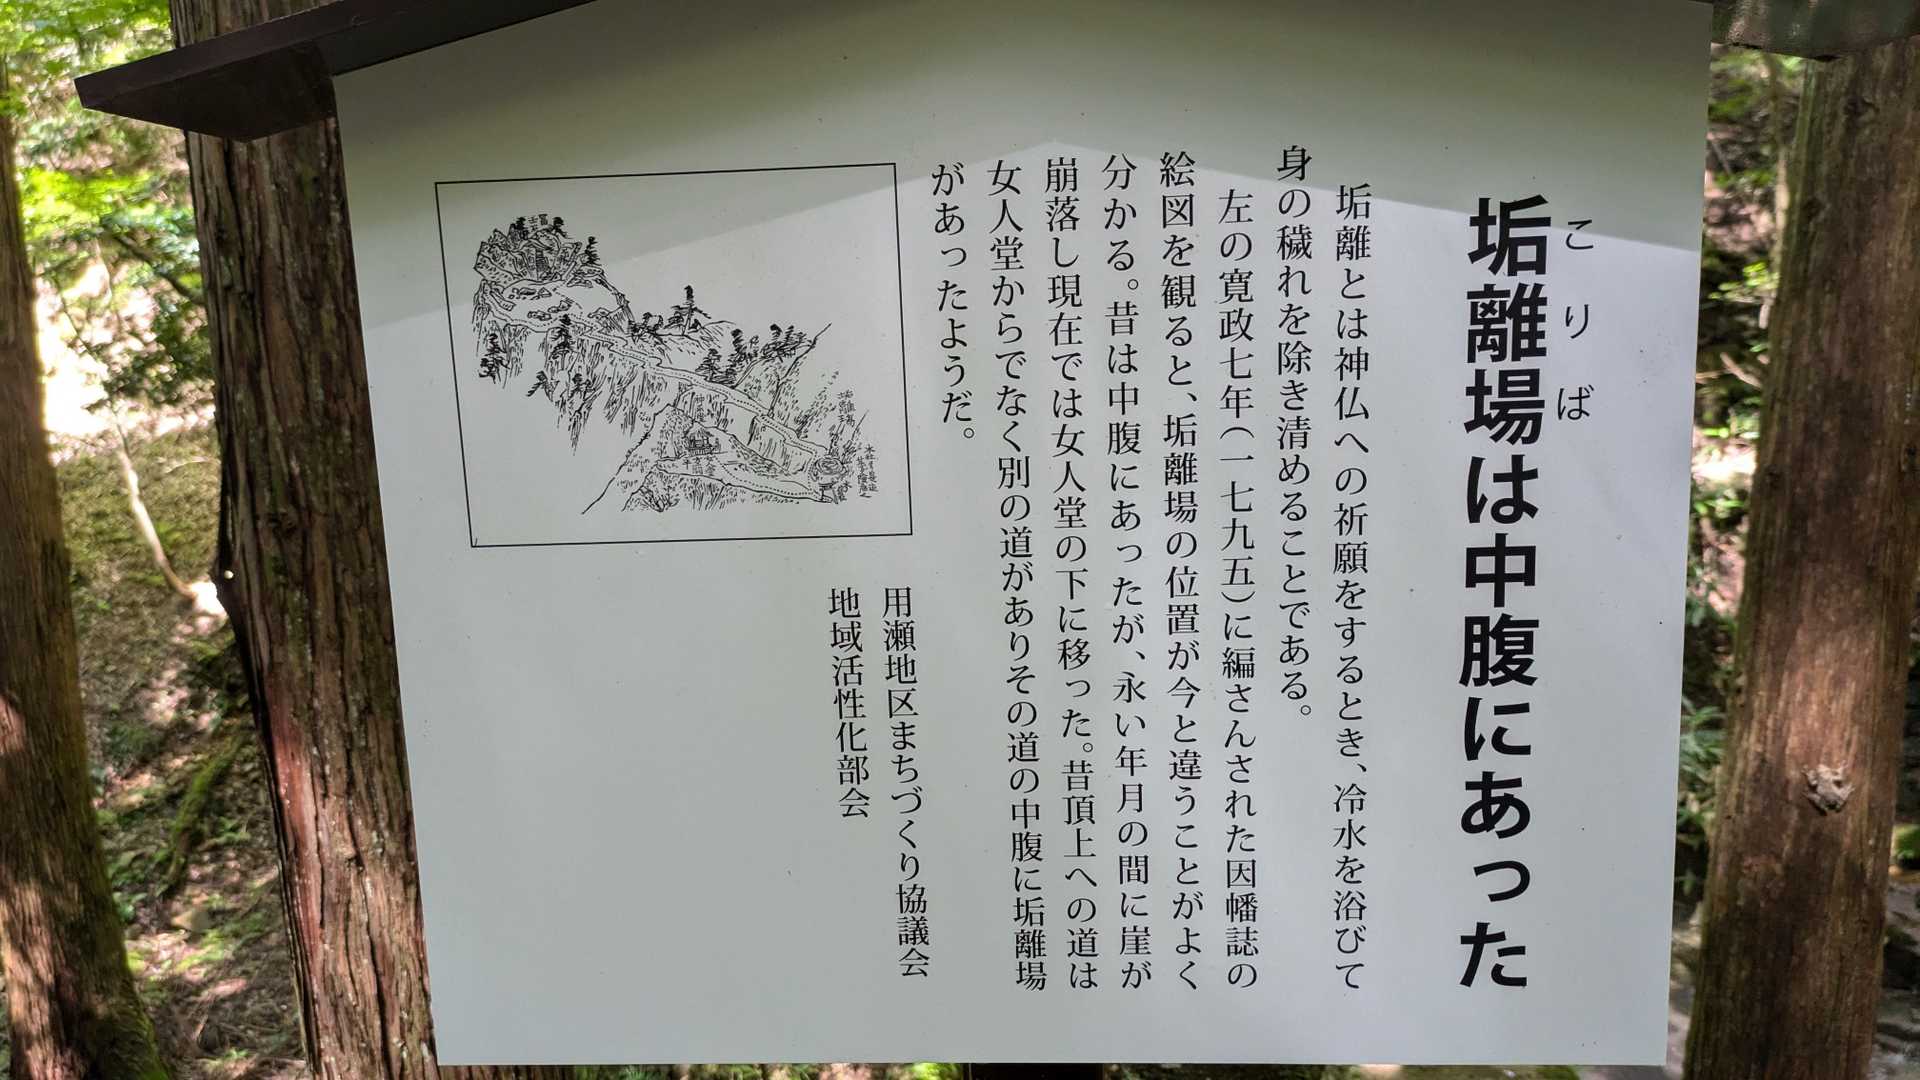 垢離場は中腹にあった
こりば
垢離とは神仏への祈願をするとき、冷水を浴びて
身の穢れを除き清めることである。
左の寛政七年(一七九五)に編さんされた因幡誌の
絵図を観ると、垢離場の位置が今と違うことがよく
分かる。昔は中腹にあったが、永い年月の間に崖が
崩落し現在では女人堂の下に移った。昔頂上への道は
女人堂からでなく別の道がありその道の中腹に垢離場
があったようだ。
垢離場
用瀬地区まちづくり協議会
地域活性化部会